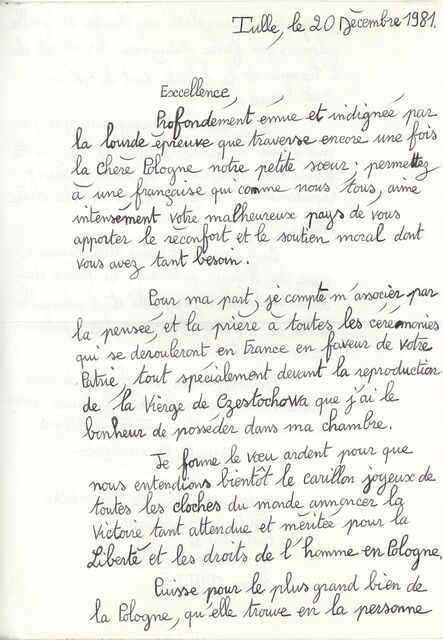 Tulle, le 20 Décembre 1981.
Excellence,
Profondément émue et indignée par
la lourde épreuve que traverse encore une fois
la Chère Pologne notre petite sœur ; permettez
à une française qui comme nous tous, aime
intensément votre malheureux pays de vous
apporter le réconfort et le soutien moral dont
vous avez tant besoin.
Pour ma part, je compte m'associer par
la pensée, et la prière à toutes les cérémonies
qui se dérouleront en France en faveur de votre
Patrie, tout spécialement devant la reproduction
de la Vierge de Czestochowa que j'ai le
bonheur de posséder dans ma chambre.
Je forme le vœu ardent pour que
nous entendions bientôt le carillon joyeux de
toutes les cloches du monde annoncer la
Victoire tant attendue et méritée pour la
Liberté et les droits de l'homme en Pologne.
Puisse pour le plus grand bien de
la Pologne, qu'elle trouve en la personne